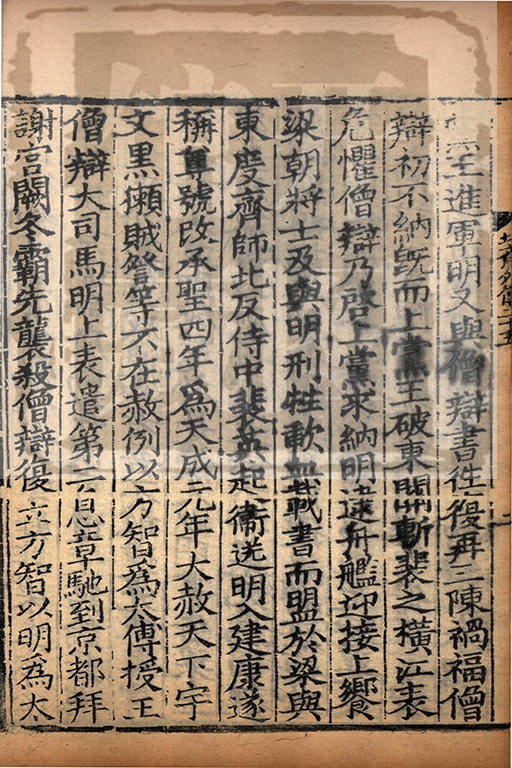 王進軍明又與僧辯書徃復再三陳禍福僧
辯初不納旣而上黨王破東關斬裴之橫江表
危懼僧辯乃啓上黨求納明遣舟艦迎接上饗
梁朝將士及與明刑牲歃血載書而盟於梁與
東度齊師北反侍中裴英起衞送明入建康遂
稱尊號改承聖四年爲天成元年大赦天下宇
文黒獺賊詧等不在赦例以方智爲太傅授王
僧辯大司馬明上表遣第二息章馳到京都拜
謝宮闕冬霸先襲殺僧辯復立方智以明爲太